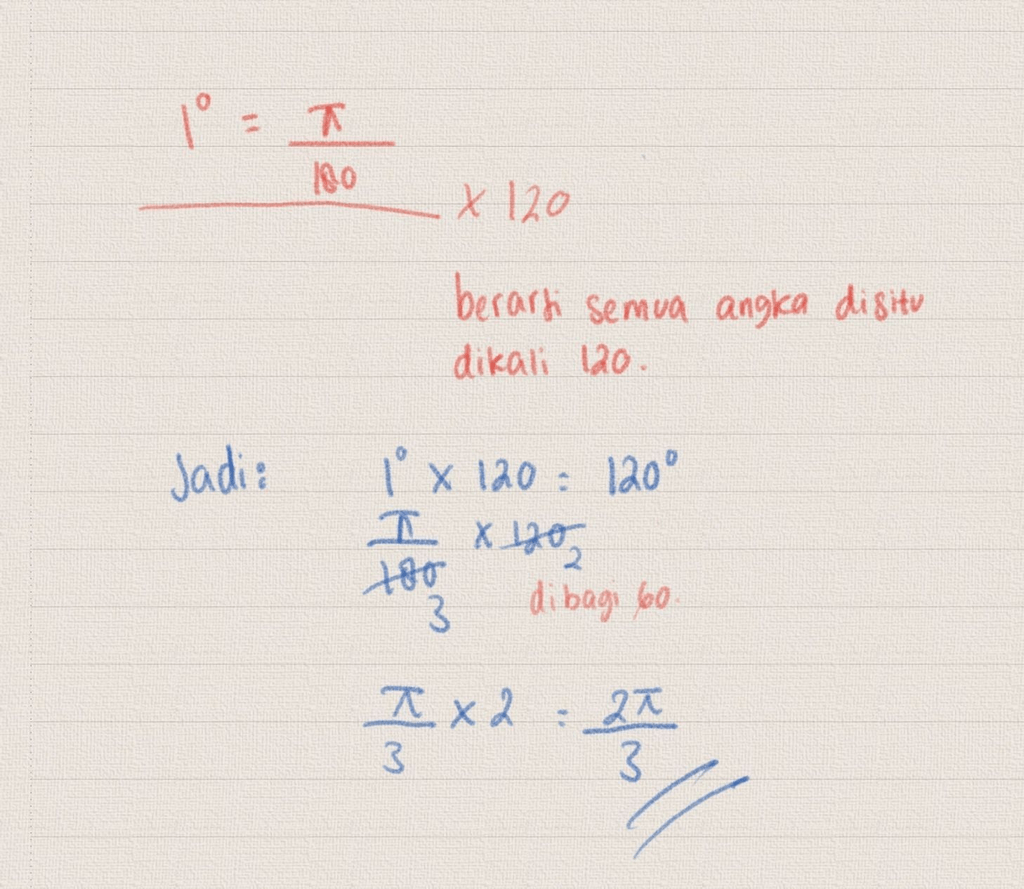 1° = π/180
× 120
berarti semua angka disitu
dikali 120.
Jadi: 1° × 120 = 120°
π/180 × 120 2
3 dibagi 60.
π/3 × 2 = 2π/3